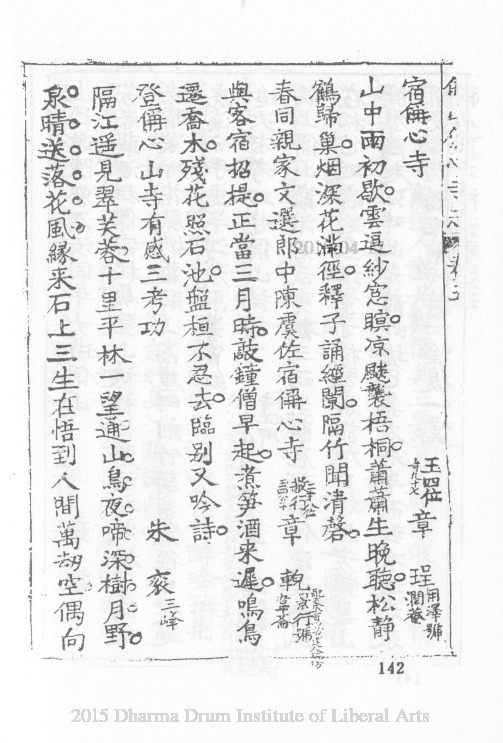 宿偁心寺 玉四位 章 珵 用澤號潤菴
山中雨初歇雲逗紗窓暝凉颷襲梧桐蕭蕭生晚聽松静
鶴歸巢烟深花滿徑釋子誦經闌隔竹聞清磬
春同親家文選郎中陳虞佐宿偁心寺 章 軏
與客宿招提正當三月時敲鐘僧早起煮笋酒来遲鳴鳥
遷喬木殘花照石池盤桓不忍去臨别又吟詩
登偁心山寺有感三考功 朱 衮 三峰
隔江遥見翠芙蓉十里平林一望通山鳥夜啼深樹月野
泉晴送落花風緣来石上三生在悟到人間萬劫空偶向
142
2015 Dharma Drum Institute of Liberal Arts